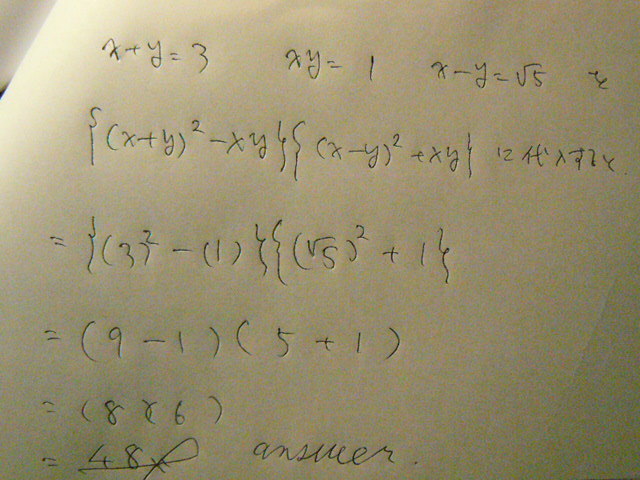 x+y=3 xy=1 x-y=√5 を
{(x+y)²-xy}{(x-y)²+xy} に代入すると
={(3)²-(1)}{(√5)²+1}
=(9-1)(5+1)
=(8×6)
=48 answer.